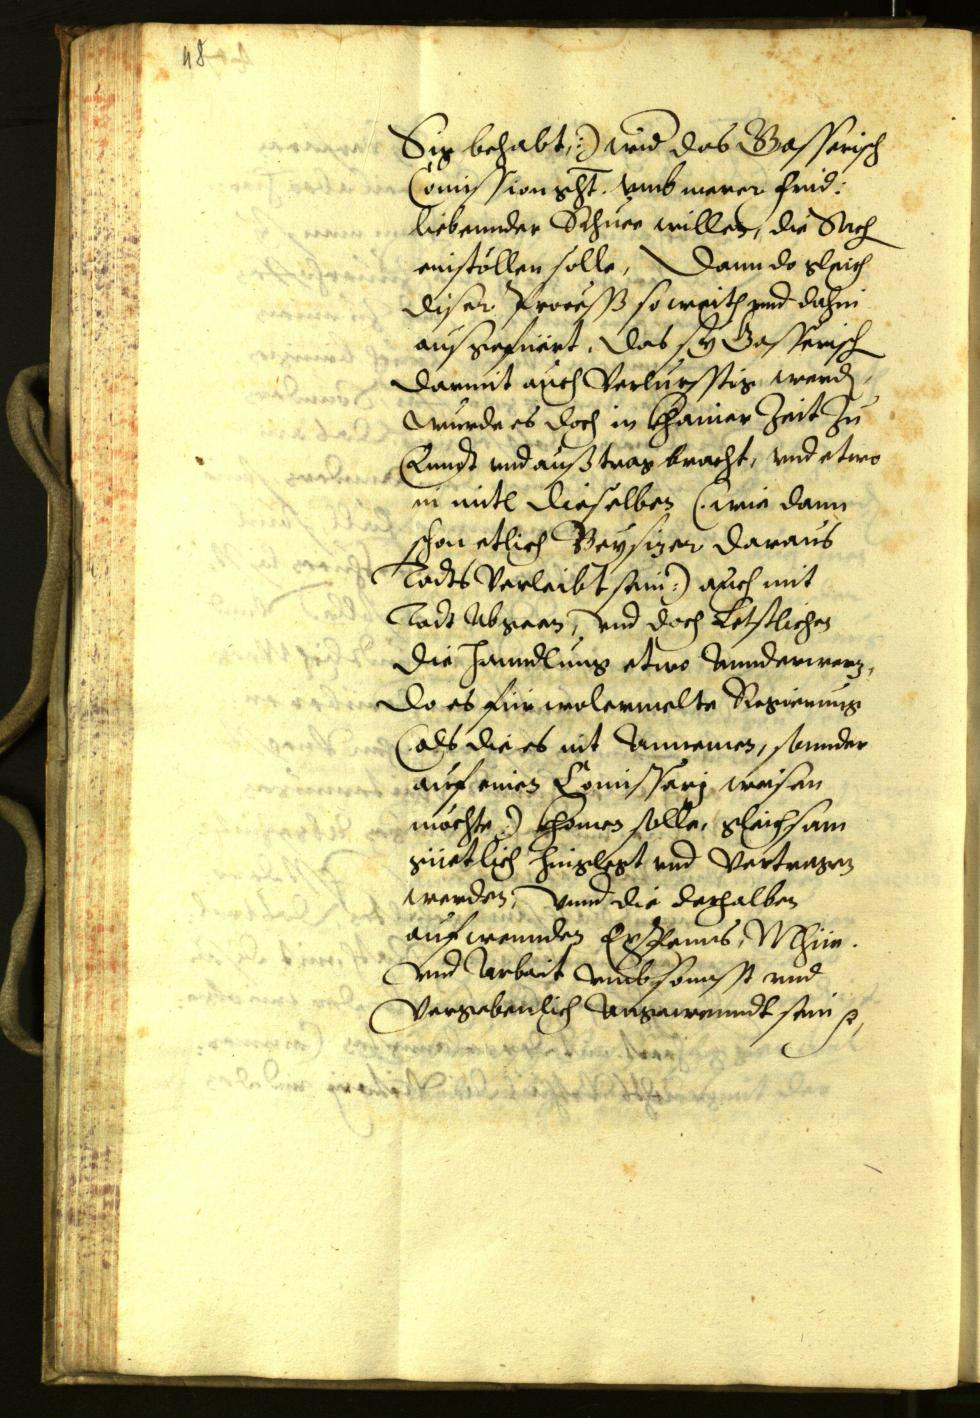 48
Sig behabt,:) und das Gasserisch
Comission gcht. umb merer frid:
liebennder Schuee willen, die Sach
einstöllen solle, Dann do gleich
diser Process so weith und dahin
ausgefüert, das sy Gasserisch
darmit auch Verlursstig werdn,
wurde es doch in khainer Zeit zu
Enndt und ausstrag bracht, und etwo
in mitl dieselben (: wie dann
schon etlich Beysizer daraus
Todts Verleibt sein:) auch mit
Todt Abgeen, und doch Letstlichen
die Hanndlung etwo Annderwerz,
do es für wolermelte Regierung
(: als die es nit Annemen, sonnder
auf einen Comissarj weisen
möchte:) khomen solle, gleichsam
güetlich hingelegt und Vertragen
werden, Unnd die derhalben
aufwennden Expenns, Mhüe.
und Arbait umbsonsst und
Vergebenlich Angewenndt sein